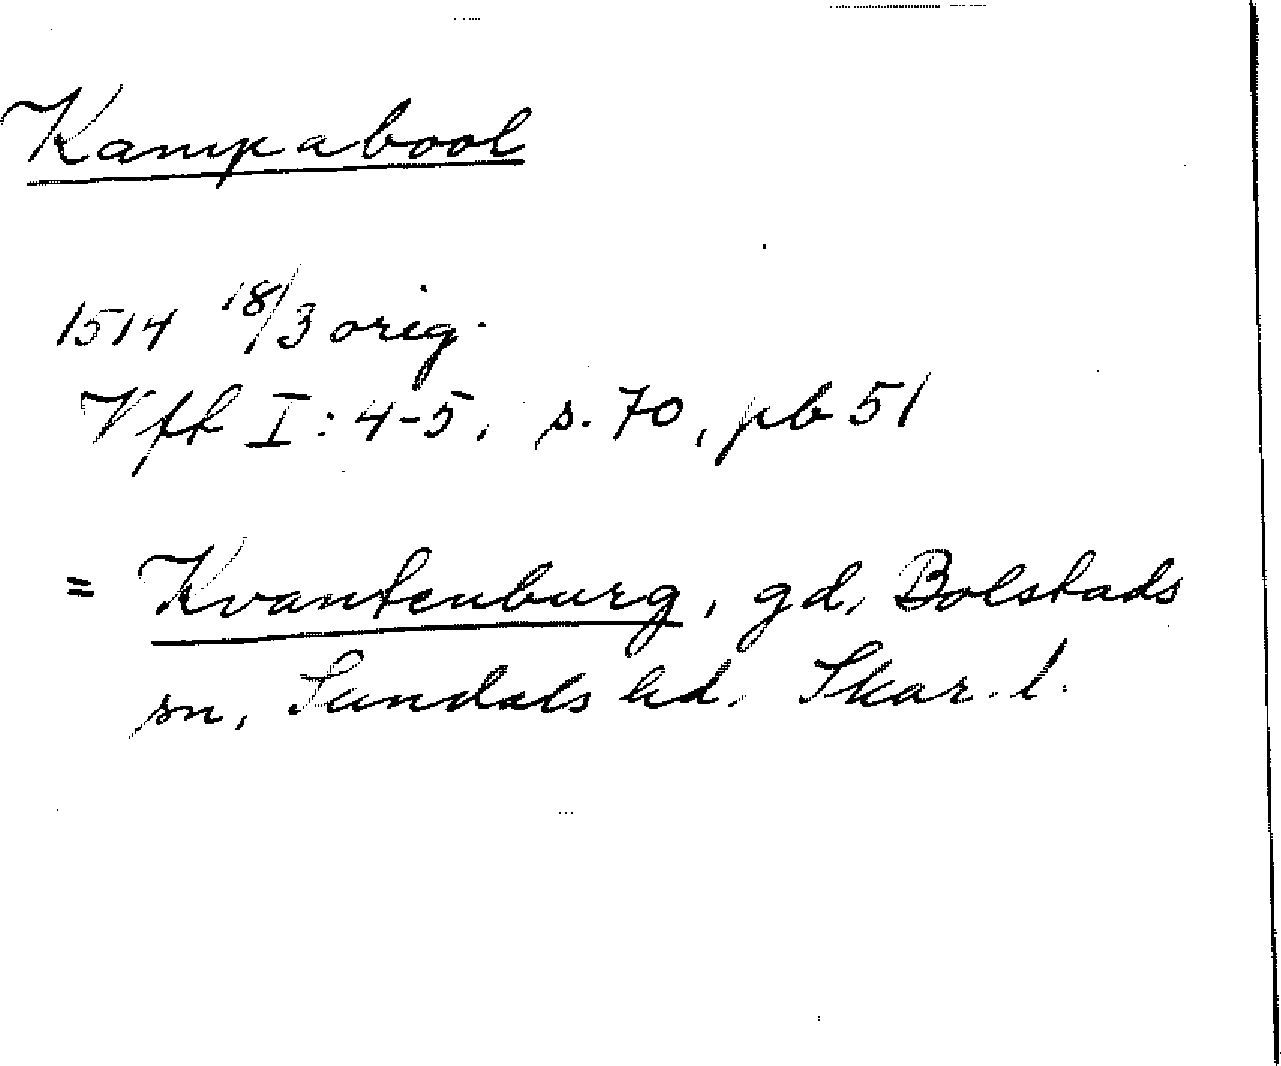 Kampabool
1514 18/3 orig.
Vfk I: 4-5, s. 70, pb 51
= Kvantenburg, gd, Bolstads
sn, Sundals hd. Skar. l.